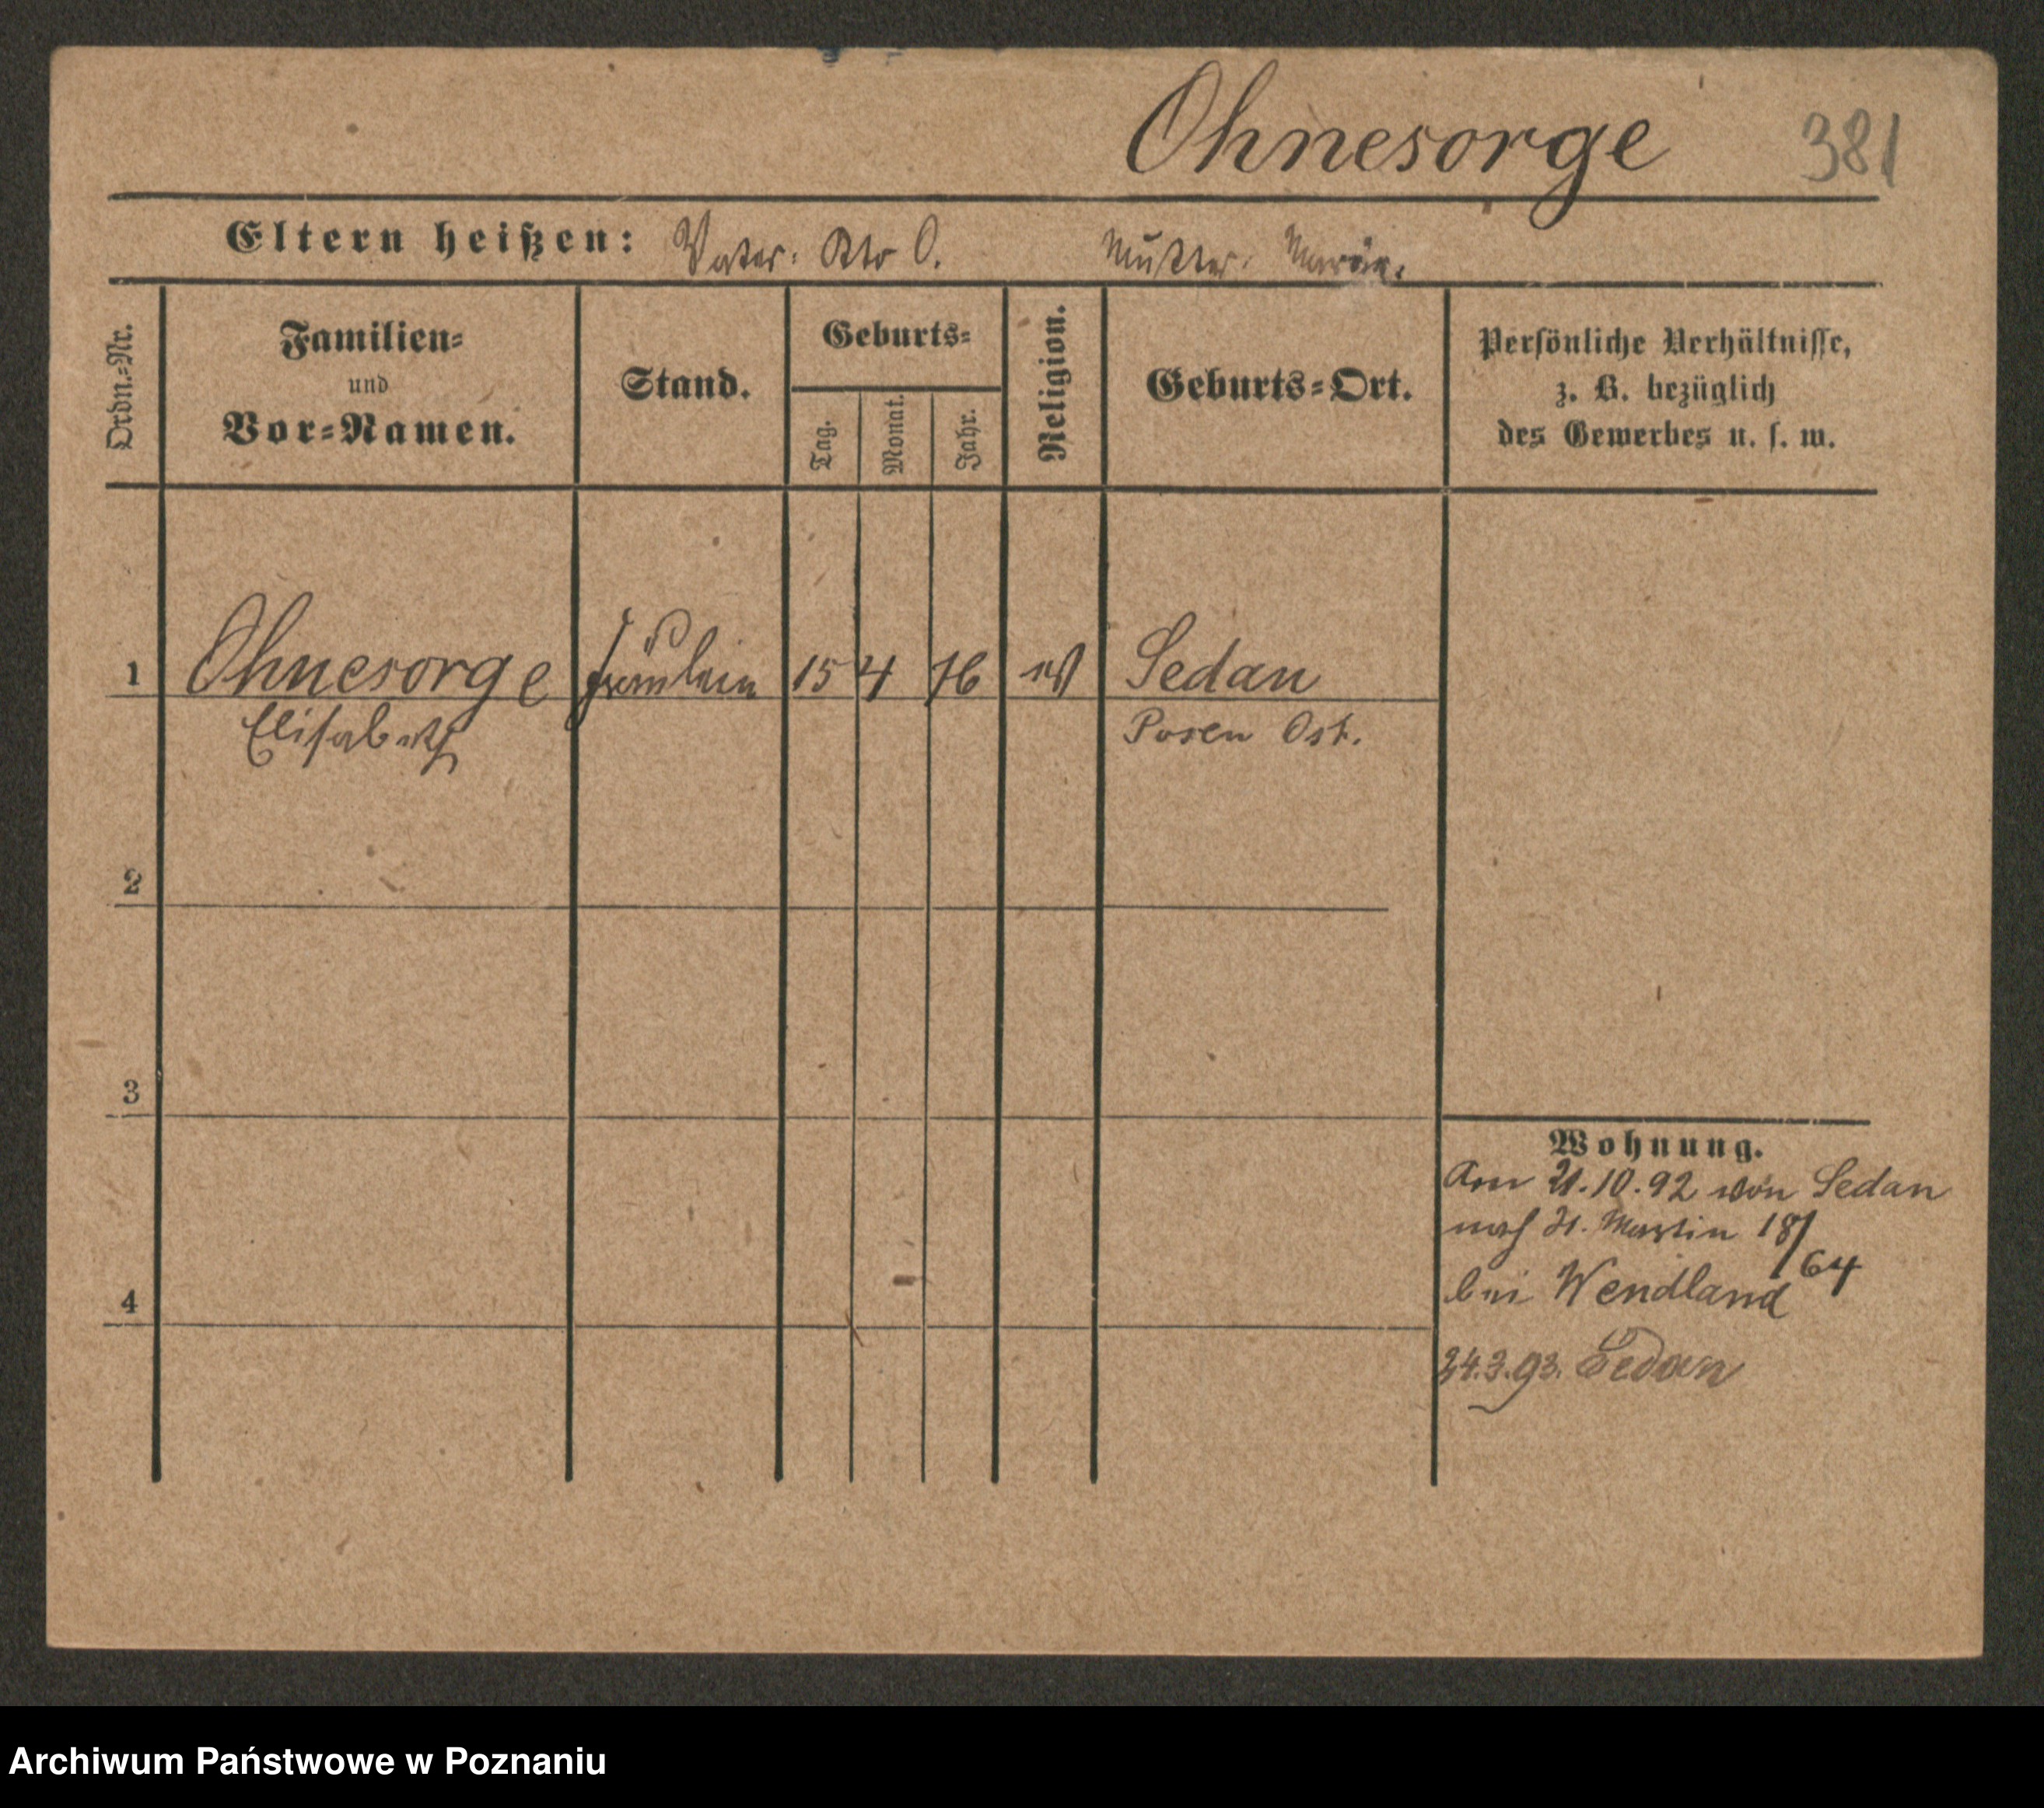 Ohnesorge 381
Eltern heißen: Vater: Otto O. Mutter: Maria.
Ordn.-Nr.
Familien-
und
Vor-Namen.
Stand.
Geburts-
Tag.
Monat.
Jahr.
Religion.
Geburts-Ort.
Persönliche Verhältnisse,
z. B. bezüglich
des Gewerbes u. s. w.
1 Ohnesorge Fräulein 15 4 76 ev Sedan
Elisabeth Posen Ost.
2
3
4
Wohnung.
Am 21.10.92 von Sedan
nach St. Martin 18/64
bei Wendland
24.3.93. Sedan
Archiwum Państwowe w Poznaniu